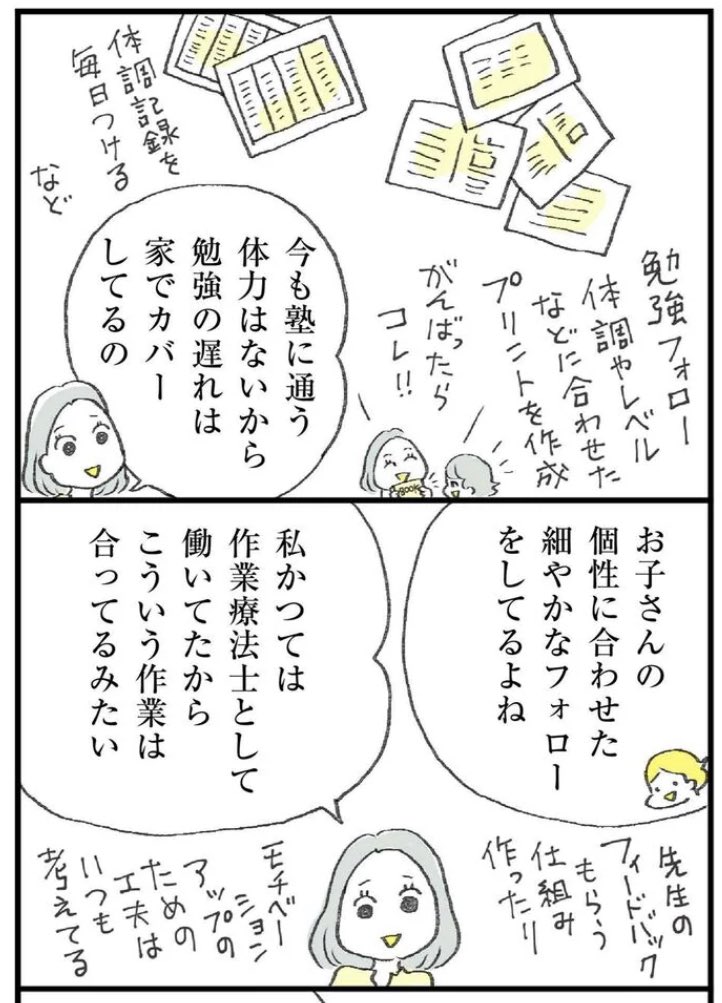 勉強フォロー
体調やレベル
などに合わせた
プリントを作成
がんばったら
コレ!!
BOOK
体調記録を
毎日つける
など
今も塾に通う
体力はないから
勉強の遅れは
家でカバー
してるの
お子さんの
個性に合わせた
細やかなフォロー
をしてるよね
私かつては
作業療法士として
働いてたから
こういう作業は
合ってるみたい
先生の
フィードバック
もらう
仕組み
作ったり
モチベー
ション
アップの
ための
工夫は
いつも
考えてる